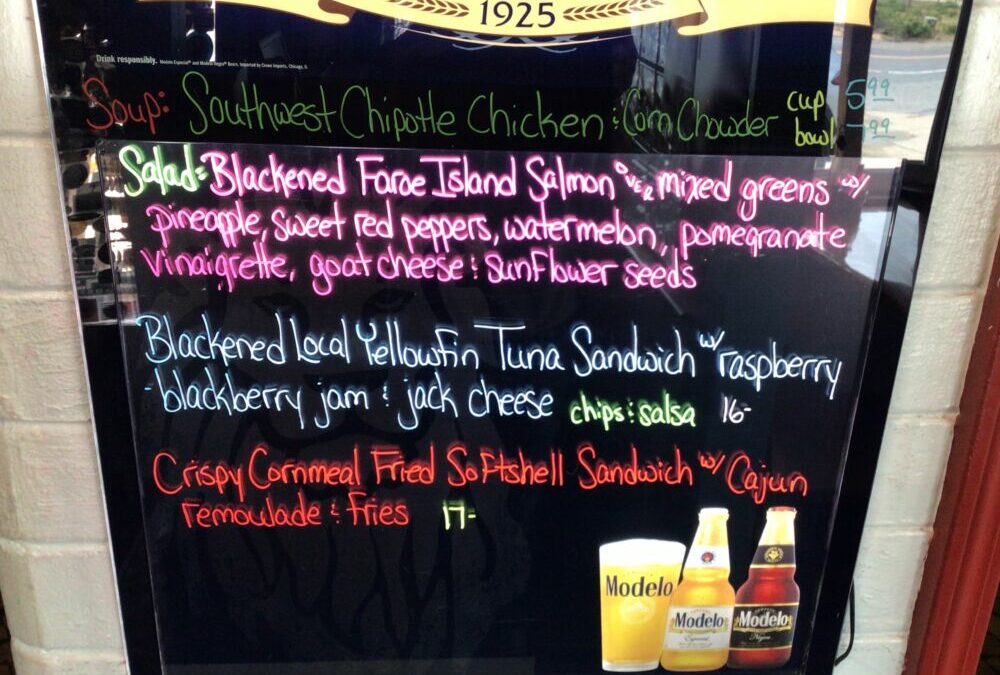 1925
Drink responsibly. Modelo Especial® and Modelo Negra® Beers. Imported by Crown Imports, Chicago, IL
Soup: Southwest Chipotle Chicken & Corn Chowder cup 5.99
bowl 7.99
Salad: Blackened Faroe Island Salmon over mixed greens w/
pineapple, sweet red peppers, watermelon, pomegranate
vinaigrette, goat cheese & sunflower seeds
Blackened Local Yellowfin Tuna Sandwich w/ raspberry
-blackberry jam & jack cheese chips & salsa 16-
Crispy Cornmeal Fried Softshell Sandwich w/ Cajun
remowlade & fries 17-
Modelo
Modelo
Especial
Modelo
Negra